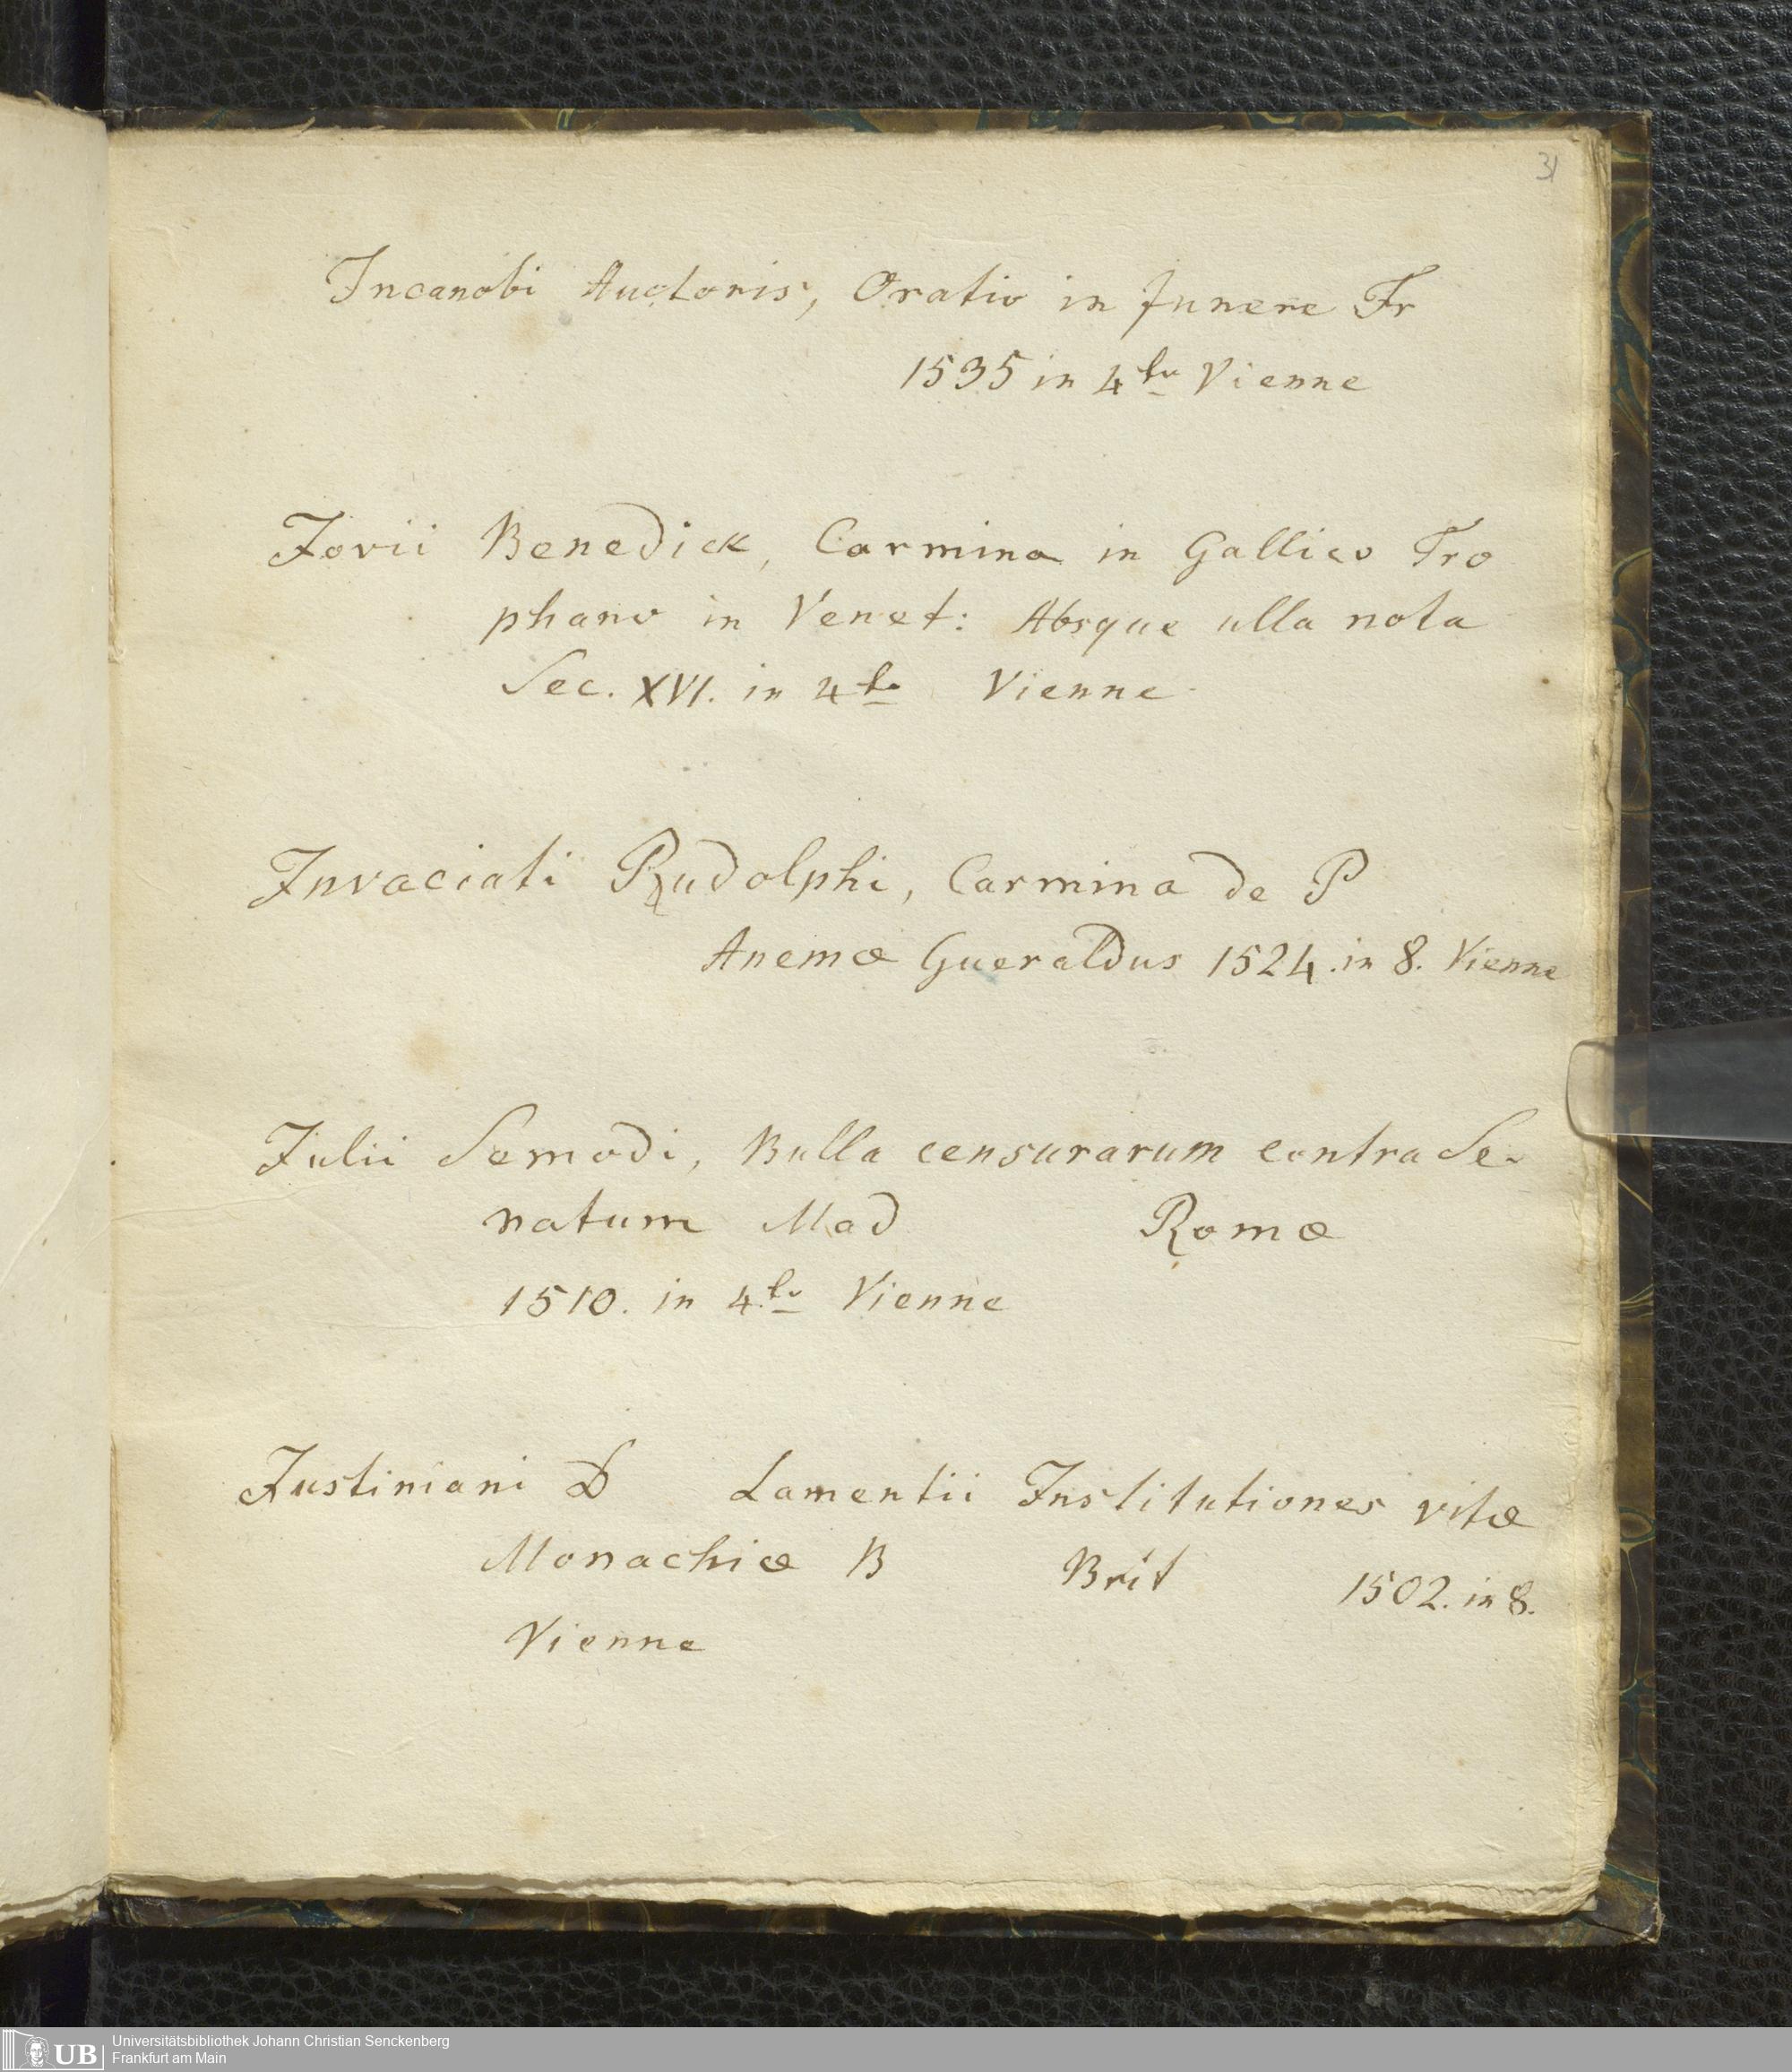 31
Incanobi Auctoris, Oratio in funere Fr
1535 in 4to Vienne
Jovii Benedick, Carmina in Gallico Tro
phano in Venet: Absque ulla nota
Sec. XVI. in 4to Vienne
Invaciati Rudolphi, Carmina de P
Anemæ Gueraldus 1524. in 8. Vienne
Julii Semodi, Bulla censurarum contra Se-
natum Mad Romæ
1510. in 4to Vienne
Justiniani D Lamentii Institutiones vitæ
Monachiæ B Brit 1502. in 8.
Vienne
UB
Universitätsbibliothek Johann Christian Senckenberg
Frankfurt am Main